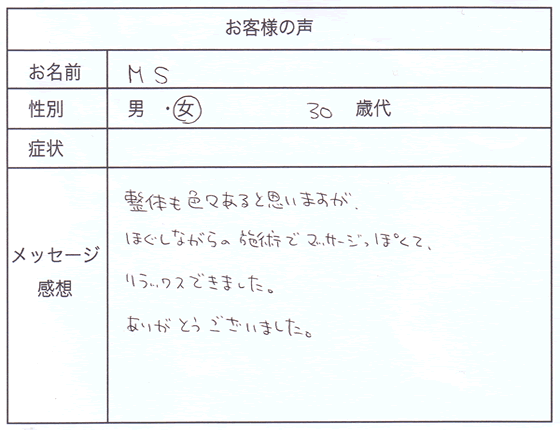 お客様の声
お名前 MS
性別 男 ・女 30 歳代
症状
メッセージ
感想
整体も色々あると思いますが、
ほぐしながらの施術でマッサージっぽくて、
リラックスできました。
ありがとうございました。